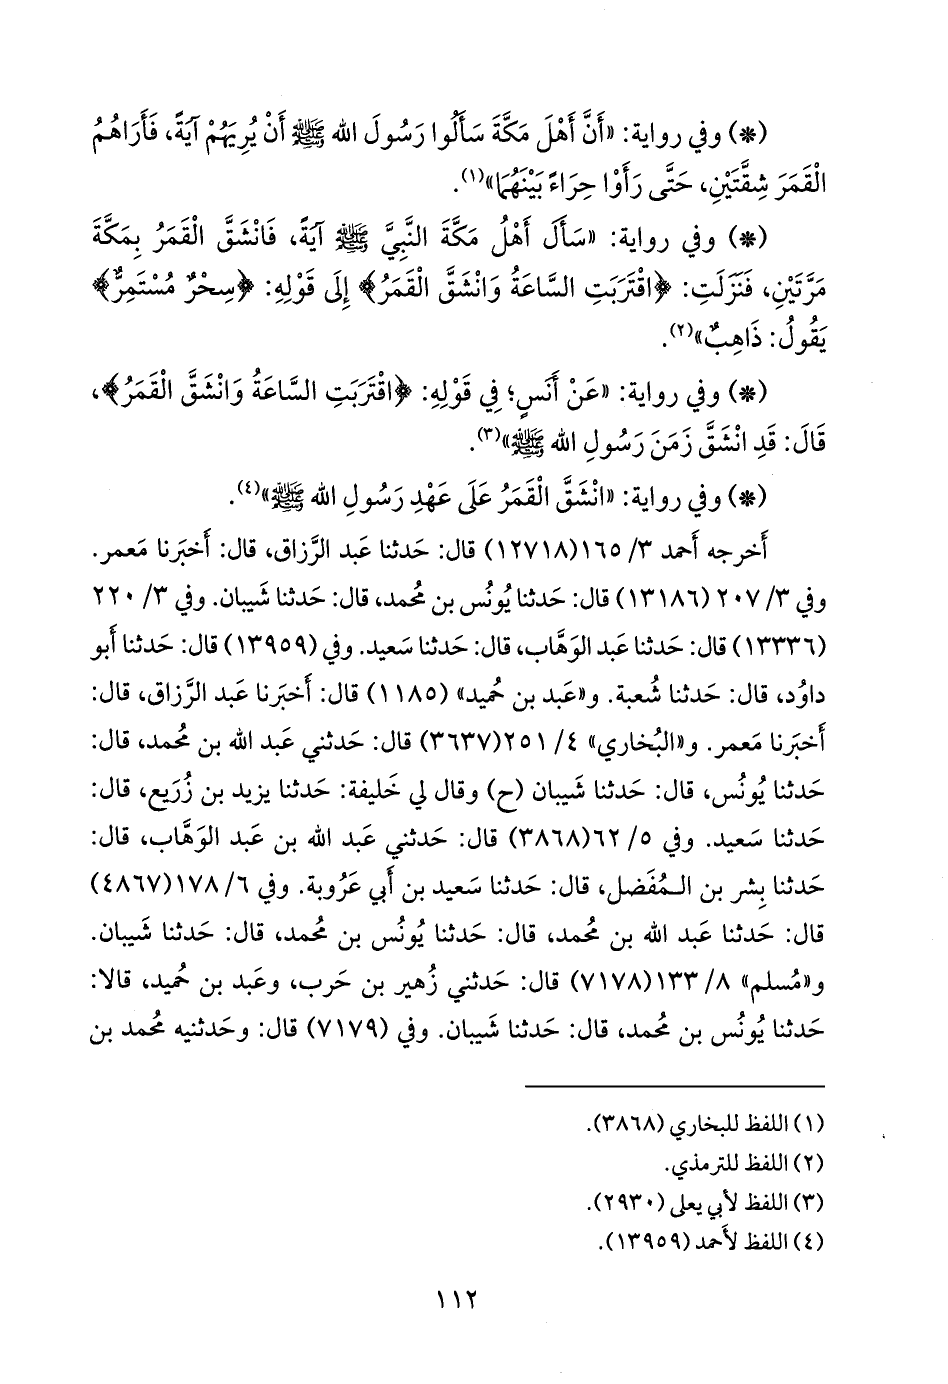 (*) وفي رواية: «أَنَّ أَهْلَ مَكَّةَ سَأَلُوا رَسُولَ الله ﷺ أَنْ يُرِيَهُمْ آيَةً، فَأَرَاهُمُ
الْقَمَرَ شِقَّتَيْنِ، حَتَّى رَأَوْا حِرَاءً بَيْنَهُمَا»(١).
(*) وفي رواية: «سَأَلَ أَهْلُ مَكَّةَ النَّبِيَّ ﷺ آيَةً، فَانْشَقَّ الْقَمَرُ بِمَكَّةَ
مَرَّتَيْنِ، فَنَزَلَتِ: ﴿اقْتَرَبَتِ السَّاعَةُ وَانْشَقَّ الْقَمَرُ﴾ إِلَى قَوْلِهِ: ﴿سِحْرٌ مُسْتَمِرٌّ﴾
يَقُولُ: ذَاهِبٌ»(٢).
(*) وفي رواية: «عَنْ أَنَسٍ؛ فِي قَوْلِهِ: ﴿اقْتَرَبَتِ السَّاعَةُ وَانْشَقَّ الْقَمَرُ﴾،
قَالَ: قَدِ انْشَقَّ زَمَنَ رَسُولِ الله ﷺ»(٣).
(*) وفي رواية: «انْشَقَّ الْقَمَرُ عَلَى عَهْدِ رَسُولِ الله ﷺ»(٤).
أخرجه أحمد ٣/ ١٦٥(١٢٧١٨) قال: حَدثنا عَبد الرَّزاق، قال: أَخبَرنا مَعمر.
وفي ٣/ ٢٠٧ (١٣١٨٦) قال: حَدثنا يُونُس بن مُحمد، قال: حَدثنا شَيبان. وفي ٣/ ٢٢٠
(١٣٣٣٦) قال: حَدثنا عَبد الوَهَّاب، قال: حَدثنا سَعيد. وفي (١٣٩٥٩) قال: حَدثنا أَبو
داوُد، قال: حَدثنا شُعبة. و«عَبد بن حُميد» (١١٨٥) قال: أَخبَرنا عَبد الرَّزاق، قال:
أَخبَرنا مَعمر. و«البُخاري» ٤/ ٢٥١(٣٦٣٧) قال: حَدثني عَبد الله بن مُحمد، قال:
حَدثنا يُونُس، قال: حَدثنا شَيبان (ح) وقال لي خَليفة: حَدثنا يزيد بن زُرَيع، قال:
حَدثنا سَعيد. وفي ٥/ ٦٢(٣٨٦٨) قال: حَدثني عَبد الله بن عَبد الوَهَّاب، قال:
حَدثنا بِشر بن المُفَضل، قال: حَدثنا سَعيد بن أَبي عَرُوبة. وفي ٦/ ١٧٨(٤٨٦٧)
قال: حَدثنا عَبد الله بن مُحمد، قال: حَدثنا يُونُس بن مُحمد، قال: حَدثنا شَيبان.
و«مُسلم» ٨/ ١٣٣(٧١٧٨) قال: حَدثني زُهير بن حَرب، وعَبد بن حُميد، قالا:
حَدثنا يُونُس بن مُحمد، قال: حَدثنا شَيبان. وفي (٧١٧٩) قال: وحَدثنيه مُحمد بن
(١) اللفظ للبخاري (٣٨٦٨).
(٢) اللفظ للترمذي.
(٣) اللفظ لأبي يعلى (٢٩٣٠).
(٤) اللفظ لأحمد (١٣٩٥٩).
١١٢